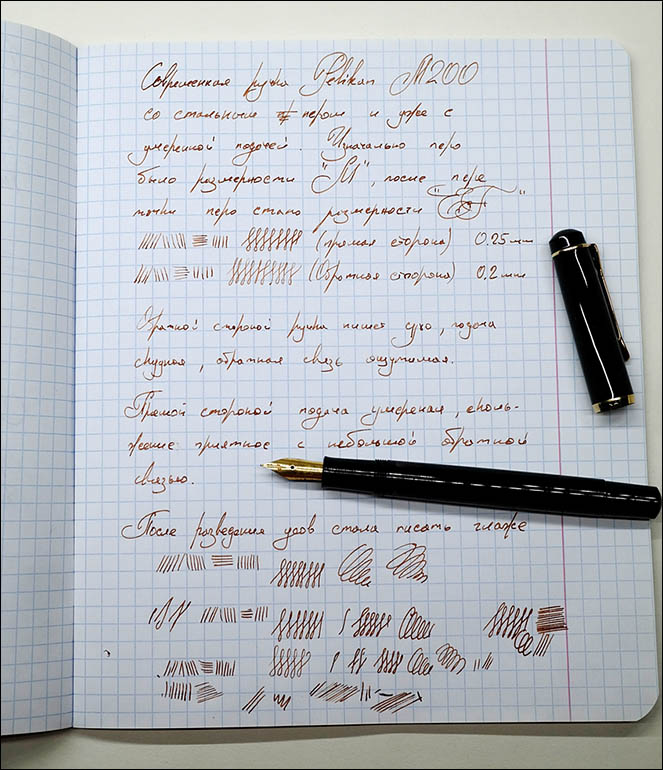 Современная ручка Pelikan M200
со стальным пером и уже с
умеренной подачей. Изначально перо
было размерности "М", после пере
точки перо стало размерности "EF"
(прямая сторона) 0.25 мм
(Обратная сторона) 0,2 мм
Обратной стороной ручка пишет сухо, подача
скудная, обратная связь ощутимая.
Прямой стороной подача умереная, сколь-
жение приятное с небольшой обратной
связью.
После разведения усов стала писать глаже